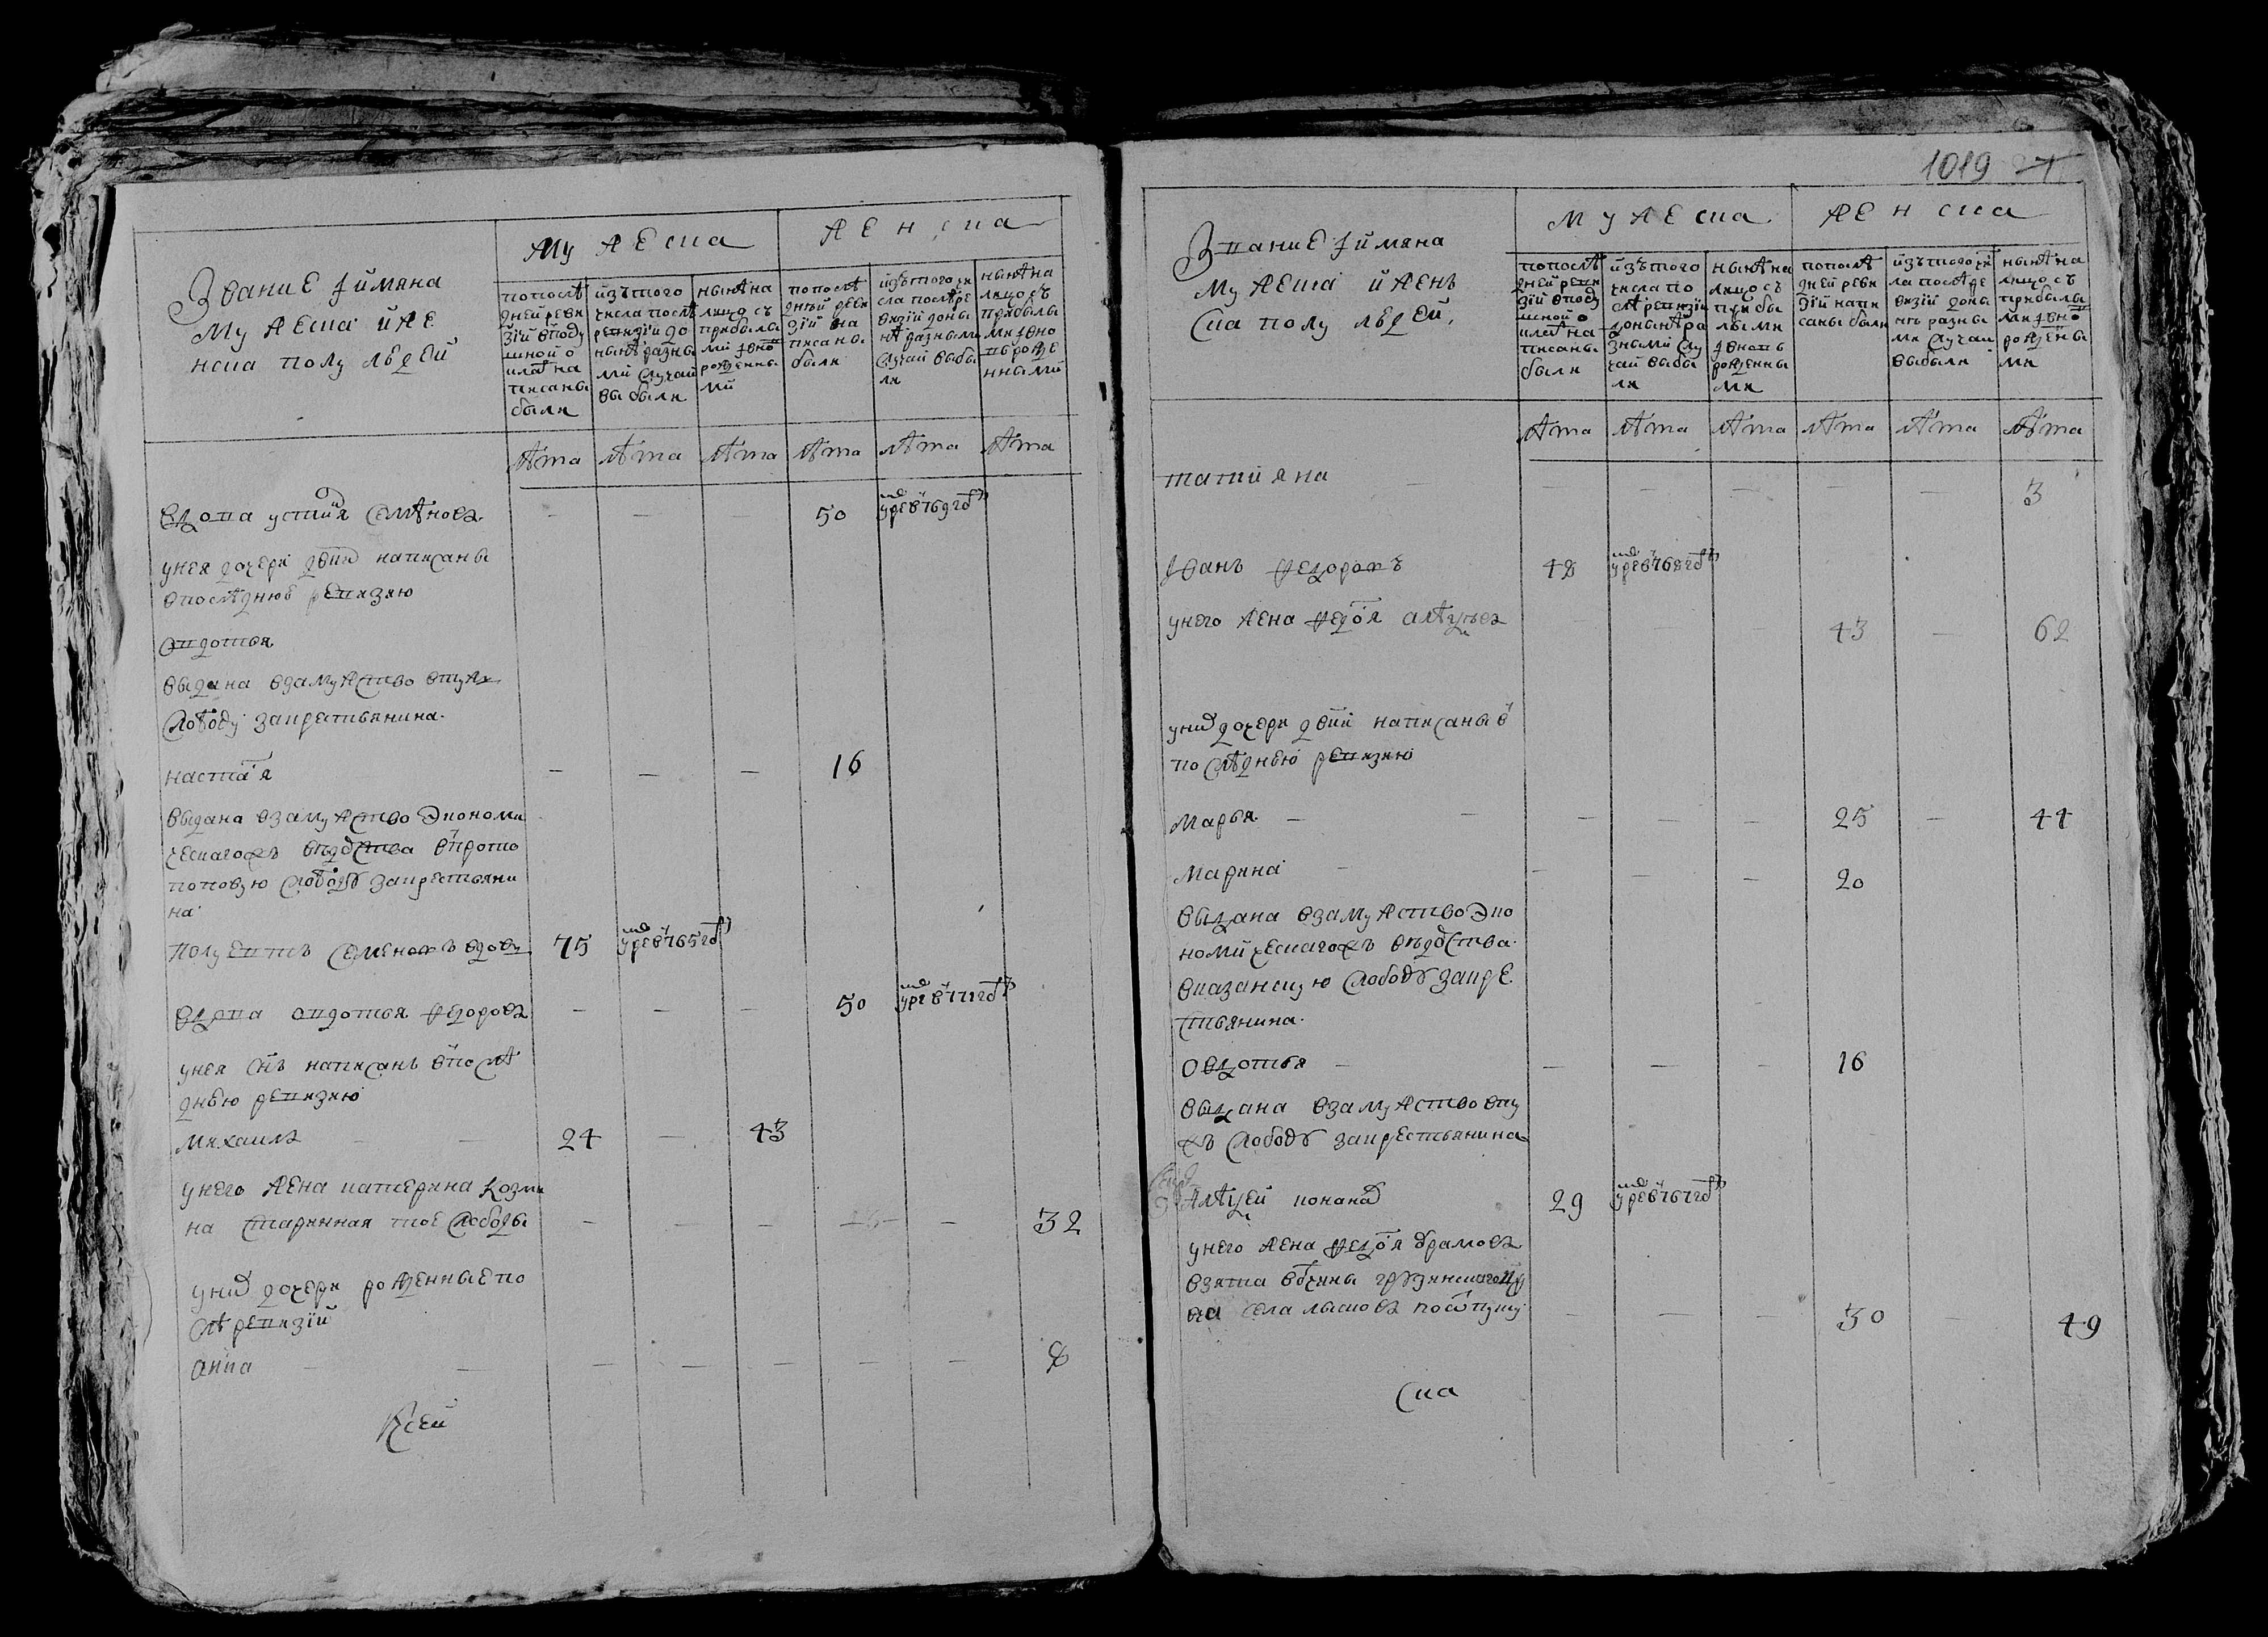 Званиe їимяна
мужеска иже
нска полу людей
мужеска
женска
по послѣ
дней реви
зїй в поду
шной о
кладъ на
писаны
были
изъ того
числа послѣ
ревизїи до
нынѣ разны
ми случаи
выбыли
нынѣ на
лицо съ
прибылы
ми ї вно
рожденны
ми
по послѣ
дней реви
зїй на
писано
были
изъ того чи
сла послѣ ре
визїй доны
нѣ разными
случаи выбы
ли
нынѣ на
лицо съ
прибылы
ми ї вно
въ рожде
нными
лѣта лѣта лѣта лѣта лѣта лѣта
вдова устиня семѣнова — — — 50 умре в 769 годѣ
у нея дочери написаны
в последнюю ревизию
авдотья
выдана в замужство в
слободу за крестьянина
настася — — — 16
выдана в замужство экономи
ческаго ведомства в прото
поповую слободу за крестьяни
на
полуектъ семеновъ вдовъ 75 умре в 765 годѣ
вдова авдотья федорова — — — 50 умре в 771 годѣ
у нея сынъ написанъ в послѣ
днюю ревизию
михаила — — 24 — 43
у него жена катерина козми
на старинная тое слободы — — — — — 32
у них дочери рожденные по
слѣ ревизїй
анна — — — — — — — 8
Ксен
1019
Званиe їимяна
мужеска иженъ
ска полу людей
мужеска
женска
по послѣ
дней реви
зїй в поду
шной о
кладъ на
писаны
были
изъ того
числа по
слѣ ревизїи
до нынѣ ра
зными слу
чаи выбы
ли
нынѣ на
лицо съ
прибы
лыми
ї вновь
рожденны
ми
по послѣ
дней реви
зїй напи
саны были
изъ того чи
сла послѣ ре
визїй доны
нѣ разны
ми случаи
выбыли
нынѣ на
лицо съ
прибылы
ми ї вно
рожденны
ми
лѣта лѣта лѣта лѣта лѣта лѣта
татияна — — — — — — 3
їванъ федоровъ 48 умре в 768 годѣ
у него жена федося алѣксѣева — — — 43 — 62
у них дочери написаны в
последнюю ревизию
марья — — — — — 25 — 44
марина — — — — 20
выдана в замужство эко
номическаго ведомства
в казанскую слободу за кре
стьянина
овдотья — — — — 16
выдана в замужство в
слободу за крестьянина
алѣксей 29 умре в 767 годѣ
у него жена федося
взята вотчины грузинскаго
села лыскова по отпуску — — — 30 — 49
ска